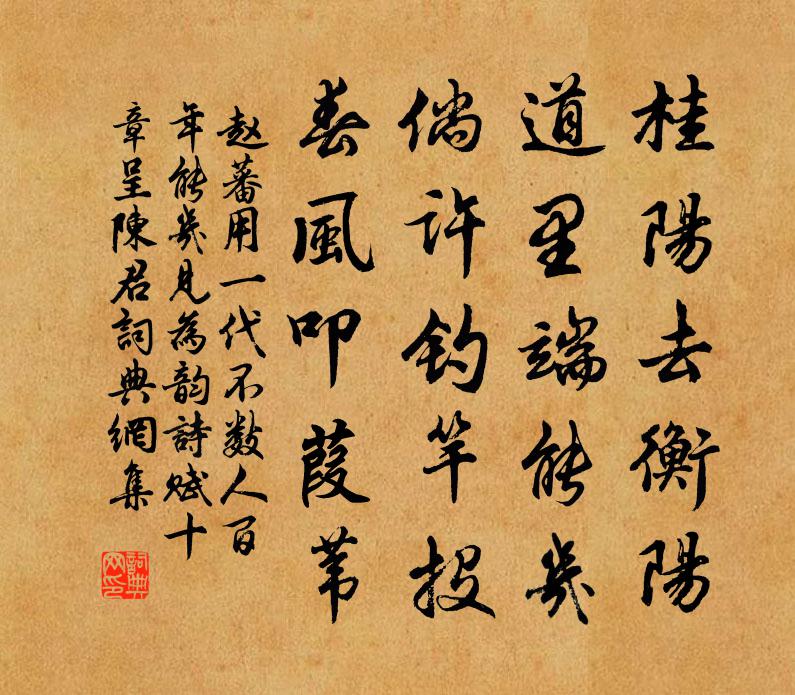 桂陽去衡陽
道里端能幾
倘許釣竿投
春風叩葭苇
赵蕃用一代不数人百
年能幾見為韵詩赋十
章呈陳君詞典網集
詞典网印